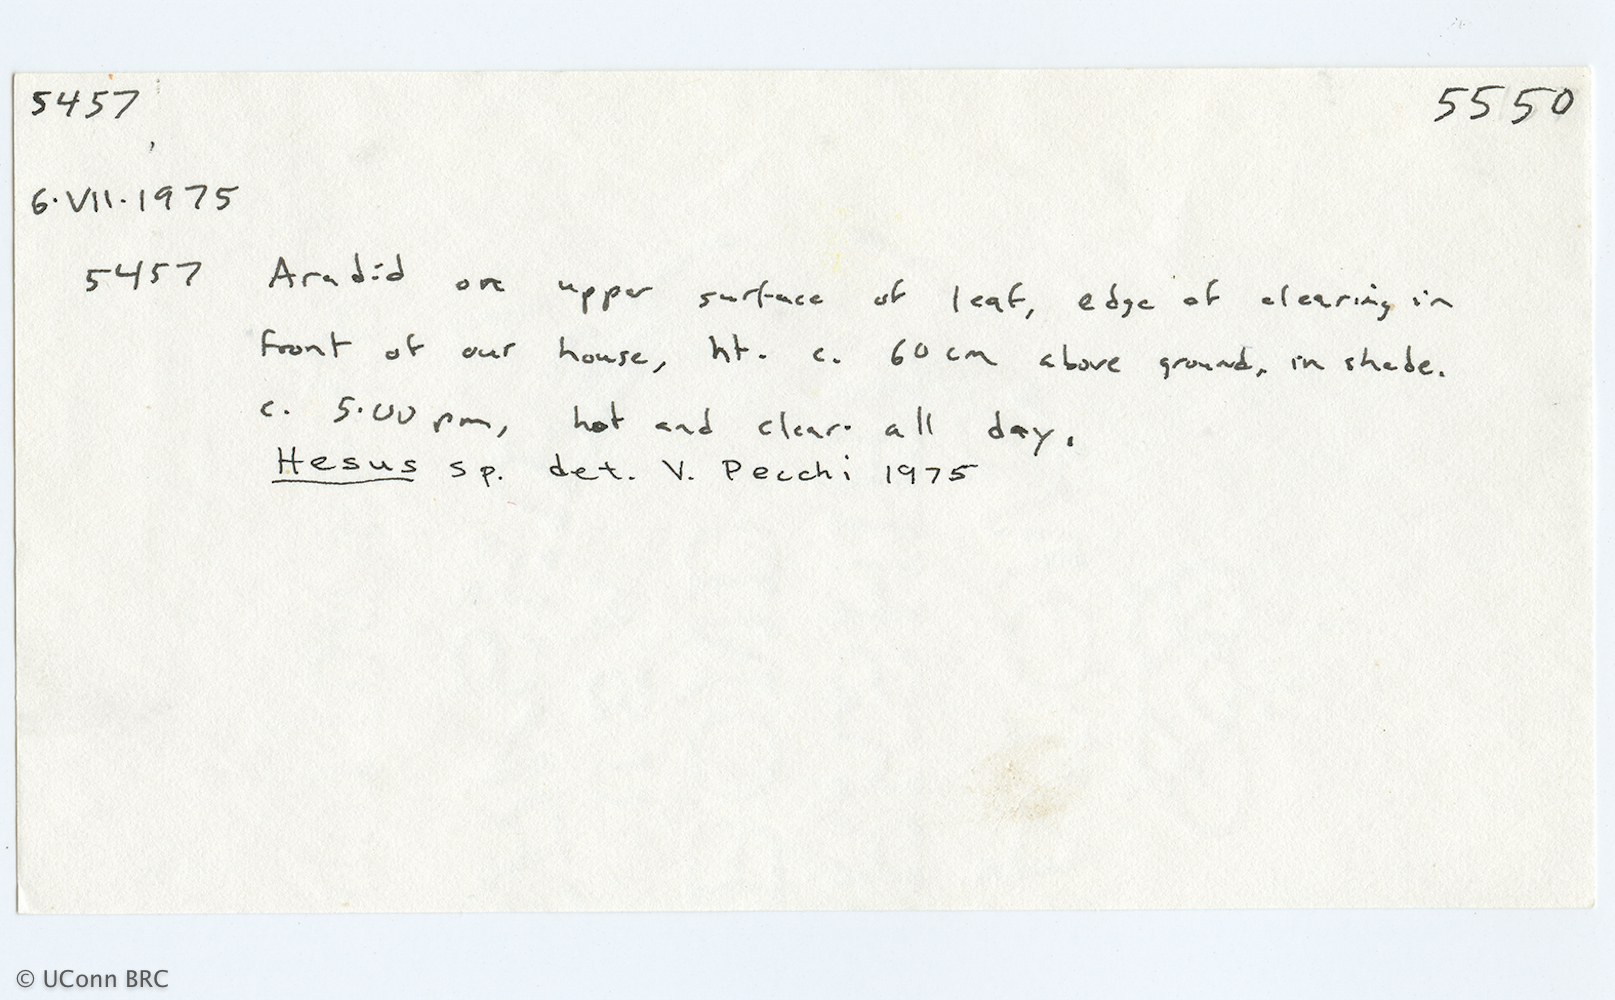 5457 5550
6.VII.1975
5457 Aradid on upper surface of leaf, edge of clearing in
front of our house, ht. c. 60 cm above ground, in shade.
c. 5.00 pm, hot and clear all day.
Hesus sp. det. V. Pecchi 1975
© UConn BRC